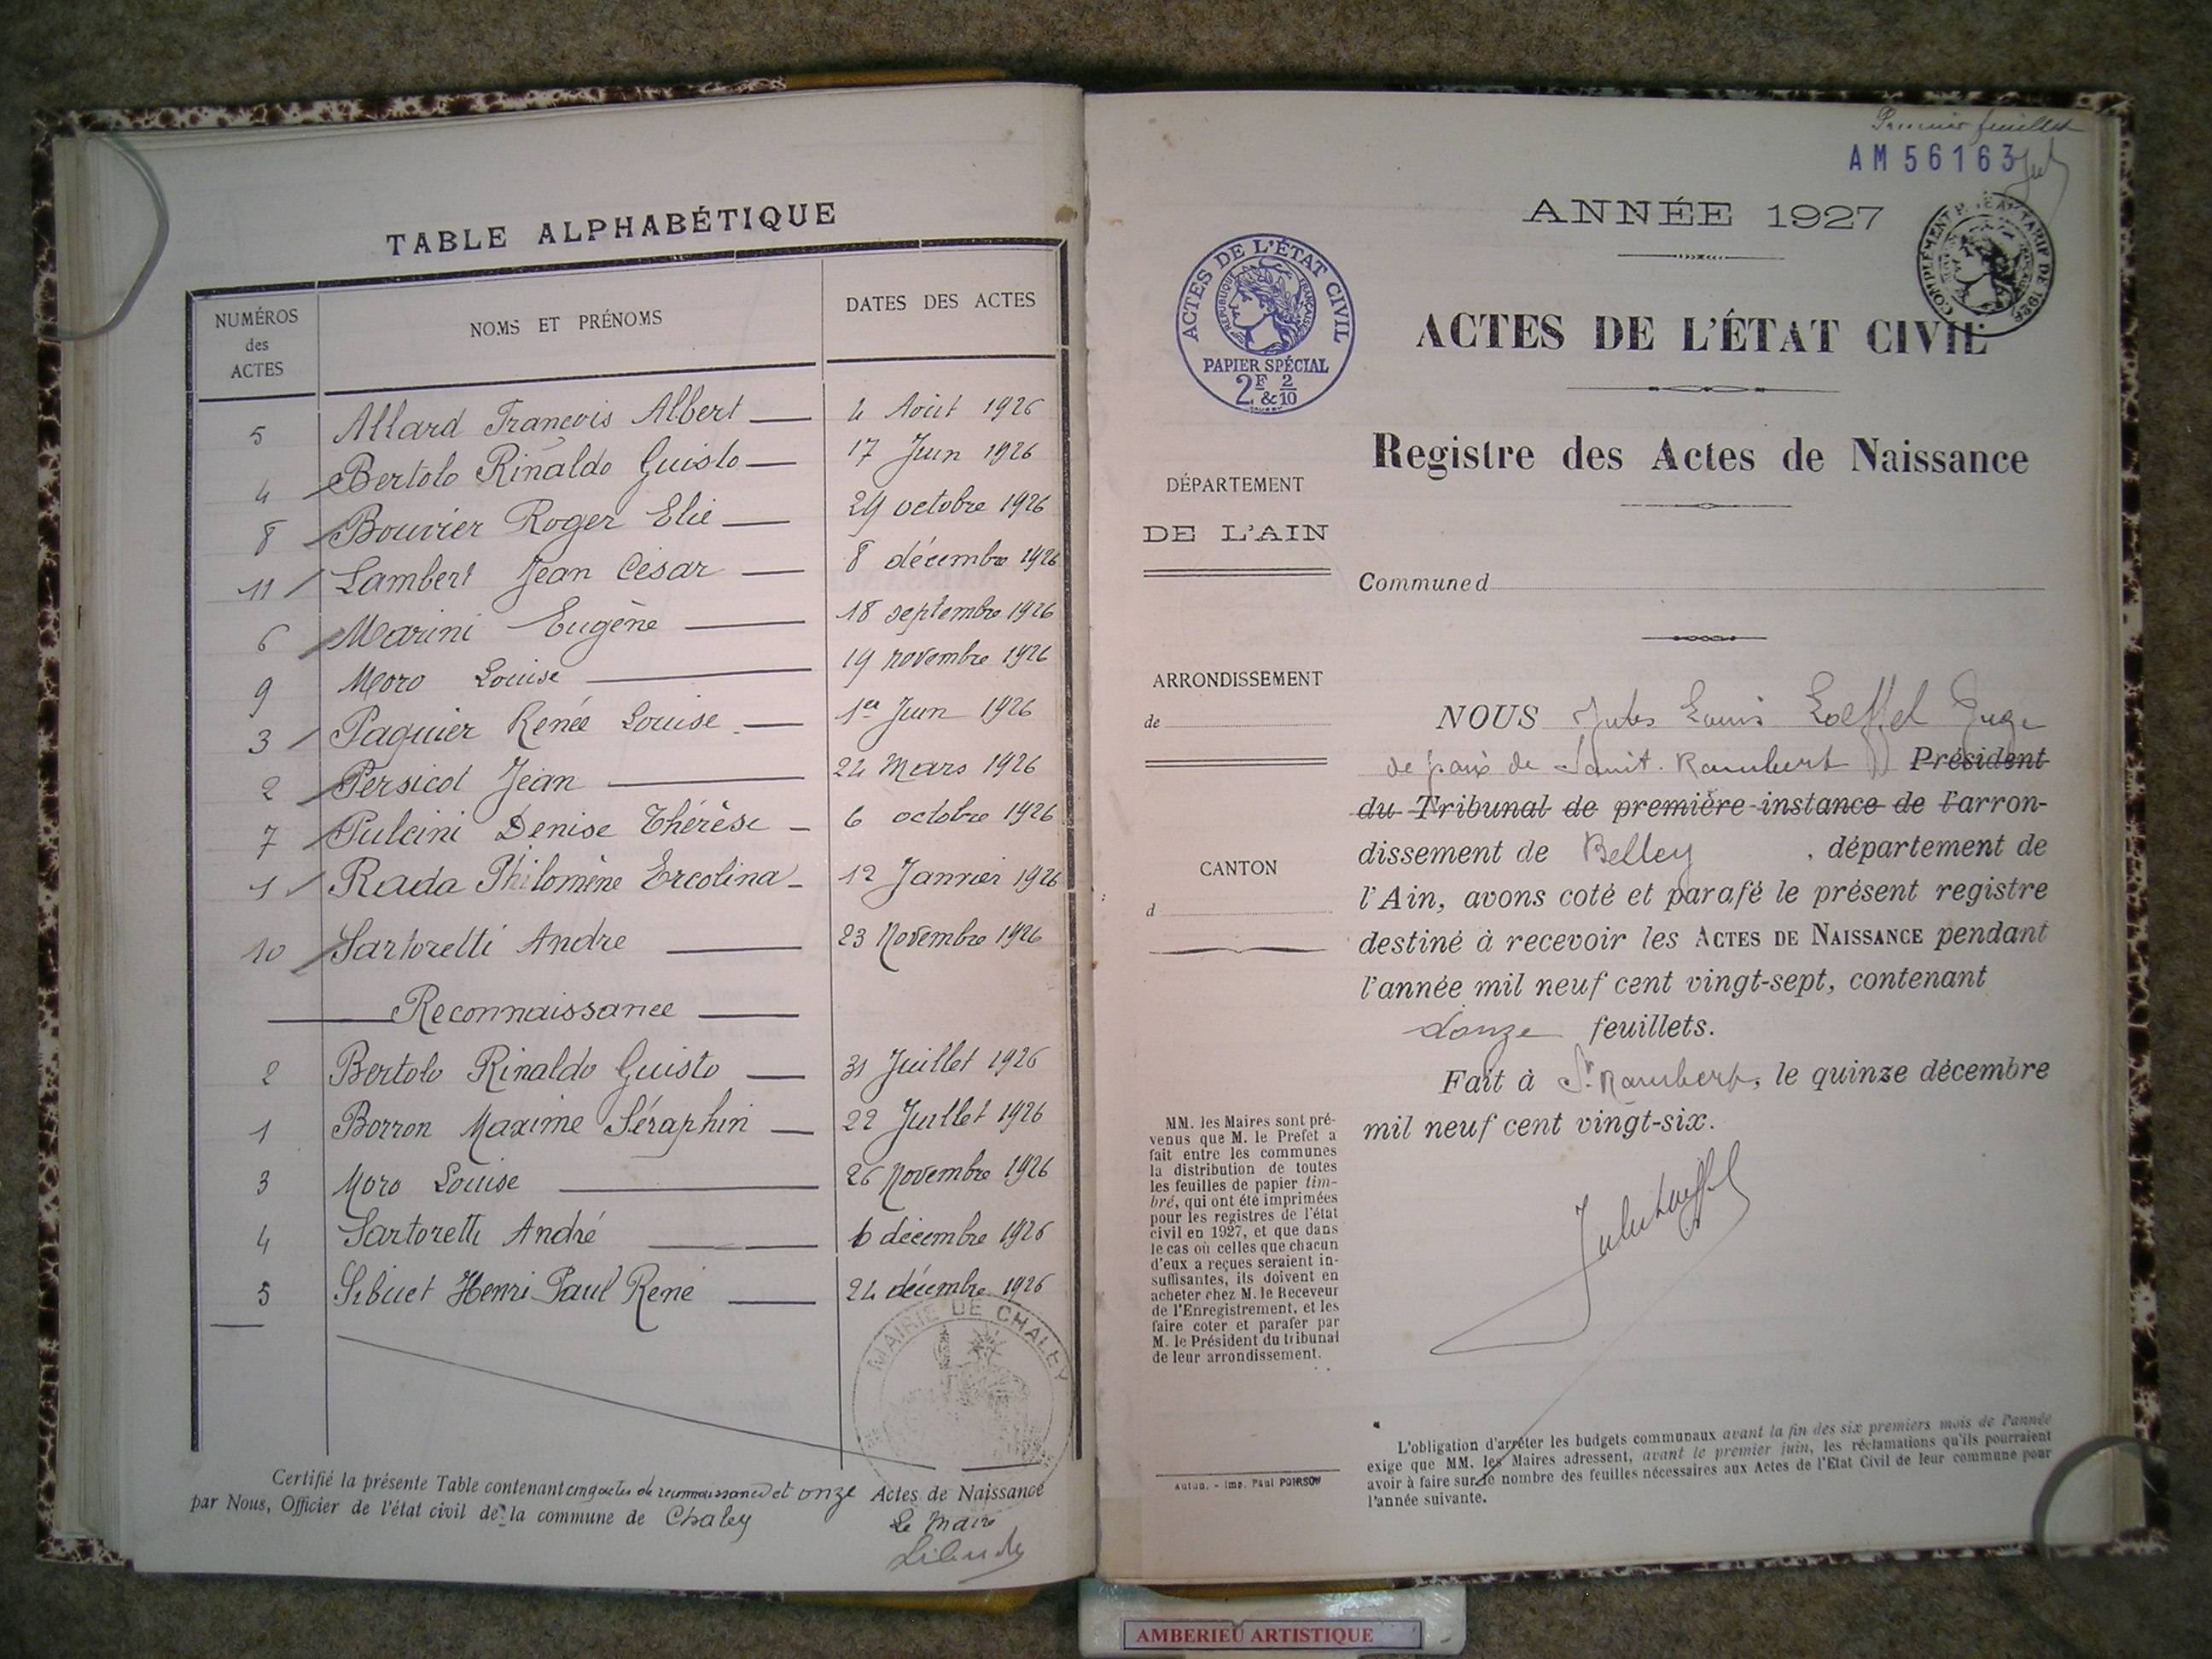 TABLE ALPHABÉTIQUE
NUMÉROS des ACTES NOMS ET PRÉNOMS DATES DES ACTES
5 Allard François Albert 4 Août 1926
4 Bertolo Rinaldo Guisto 17 Juin 1926
8 Bouvier Roger Elie 29 octobre 1926
11 Lambert Jean César 8 décembre 1926
6 Marini Eugène 18 septembre 1926
9 Moro Louise 19 novembre 1926
3 Paquier Renée Louise 1er Juin 1926
2 Persicot Jean 24 Mars 1926
7 Pulcini Denise Thérèse 6 octobre 1926
1 Rada Philomène Ercolina 12 Janvier 1926
10 Sartoretti Andre 23 Novembre 1926
Reconnaissance
2 Bertolo Rinaldo Guisto 31 Juillet 1926
1 Borron Maxime Séraphin 22 Juillet 1926
3 Moro Louise 26 Novembre 1926
4 Sartoretti André 6 décembre 1926
5 Sibuet Henri Paul René 24 décembre 1926
MAIRIE DE CHALEY
Certifié la présente Table contenant cinq actes de reconnaissance et onze Actes de Naissance
par Nous, Officier de l'état civil de la commune de Chaley
Le Maire
Premier feuillet
AM 56163
ANNÉE 1927
COMPLEMENT TARIF DE
ACTES DE L'ÉTAT CIVIL
RÉPUBLIQUE FRANÇAISE
PAPIER SPÉCIAL
2F & 2/10
ACTES DE L'ÉTAT CIVIL
Registre des Actes de Naissance
DÉPARTEMENT
DE L'AIN
Commune d
ARRONDISSEMENT
de
CANTON
d
NOUS Jules Louis Loeffel Juge
de paix de Saint-Rambert Président
du Tribunal de première instance de l'arron-
dissement de Belley, département de
l'Ain, avons coté et parafé le présent registre
destiné à recevoir les ACTES DE NAISSANCE pendant
l'année mil neuf cent vingt-sept, contenant
douze feuillets.
Fait à St Rambert, le quinze décembre
mil neuf cent vingt-six.
Jules Loeffel
MM. les Maires sont pré-
venus que M. le Préfet a
fait entre les communes
la distribution de toutes
les feuilles de papier tim-
bré, qui ont été imprimées
pour les registres de l'état
civil en 1927, et que dans
le cas où celles que chacun
d'eux a reçues seraient in-
suffisantes, ils doivent en
acheter chez M. le Receveur
de l'Enregistrement, et les
faire coter et parafer par
M. le Président du tribunal
de leur arrondissement.
Autun. - Imp. Paul POIRSON
L'obligation d'arrêter les budgets communaux avant la fin des six premiers mois de l'année
exige que MM. les Maires adressent, avant le premier juin, les réclamations qu'ils pourraient
avoir à faire sur le nombre des feuilles nécessaires aux Actes de l'Etat Civil de leur commune pour
l'année suivante.
AMBERIEU ARTISTIQUE